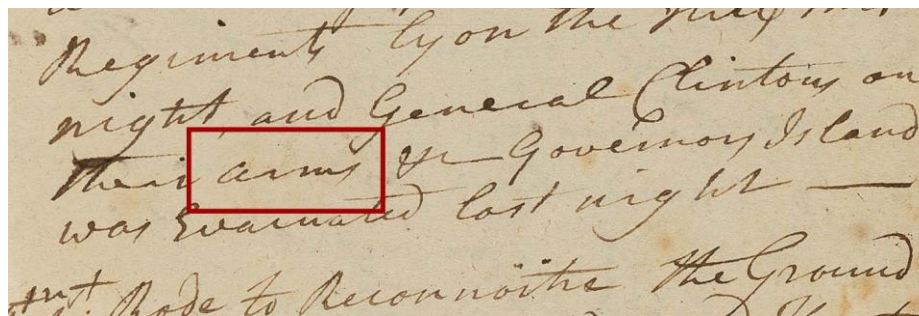 Regiments lyon the
night, and General Clintons on
their arms &c Governors Island
was Evacuated last night —
Rode to Reconnoitre the Ground